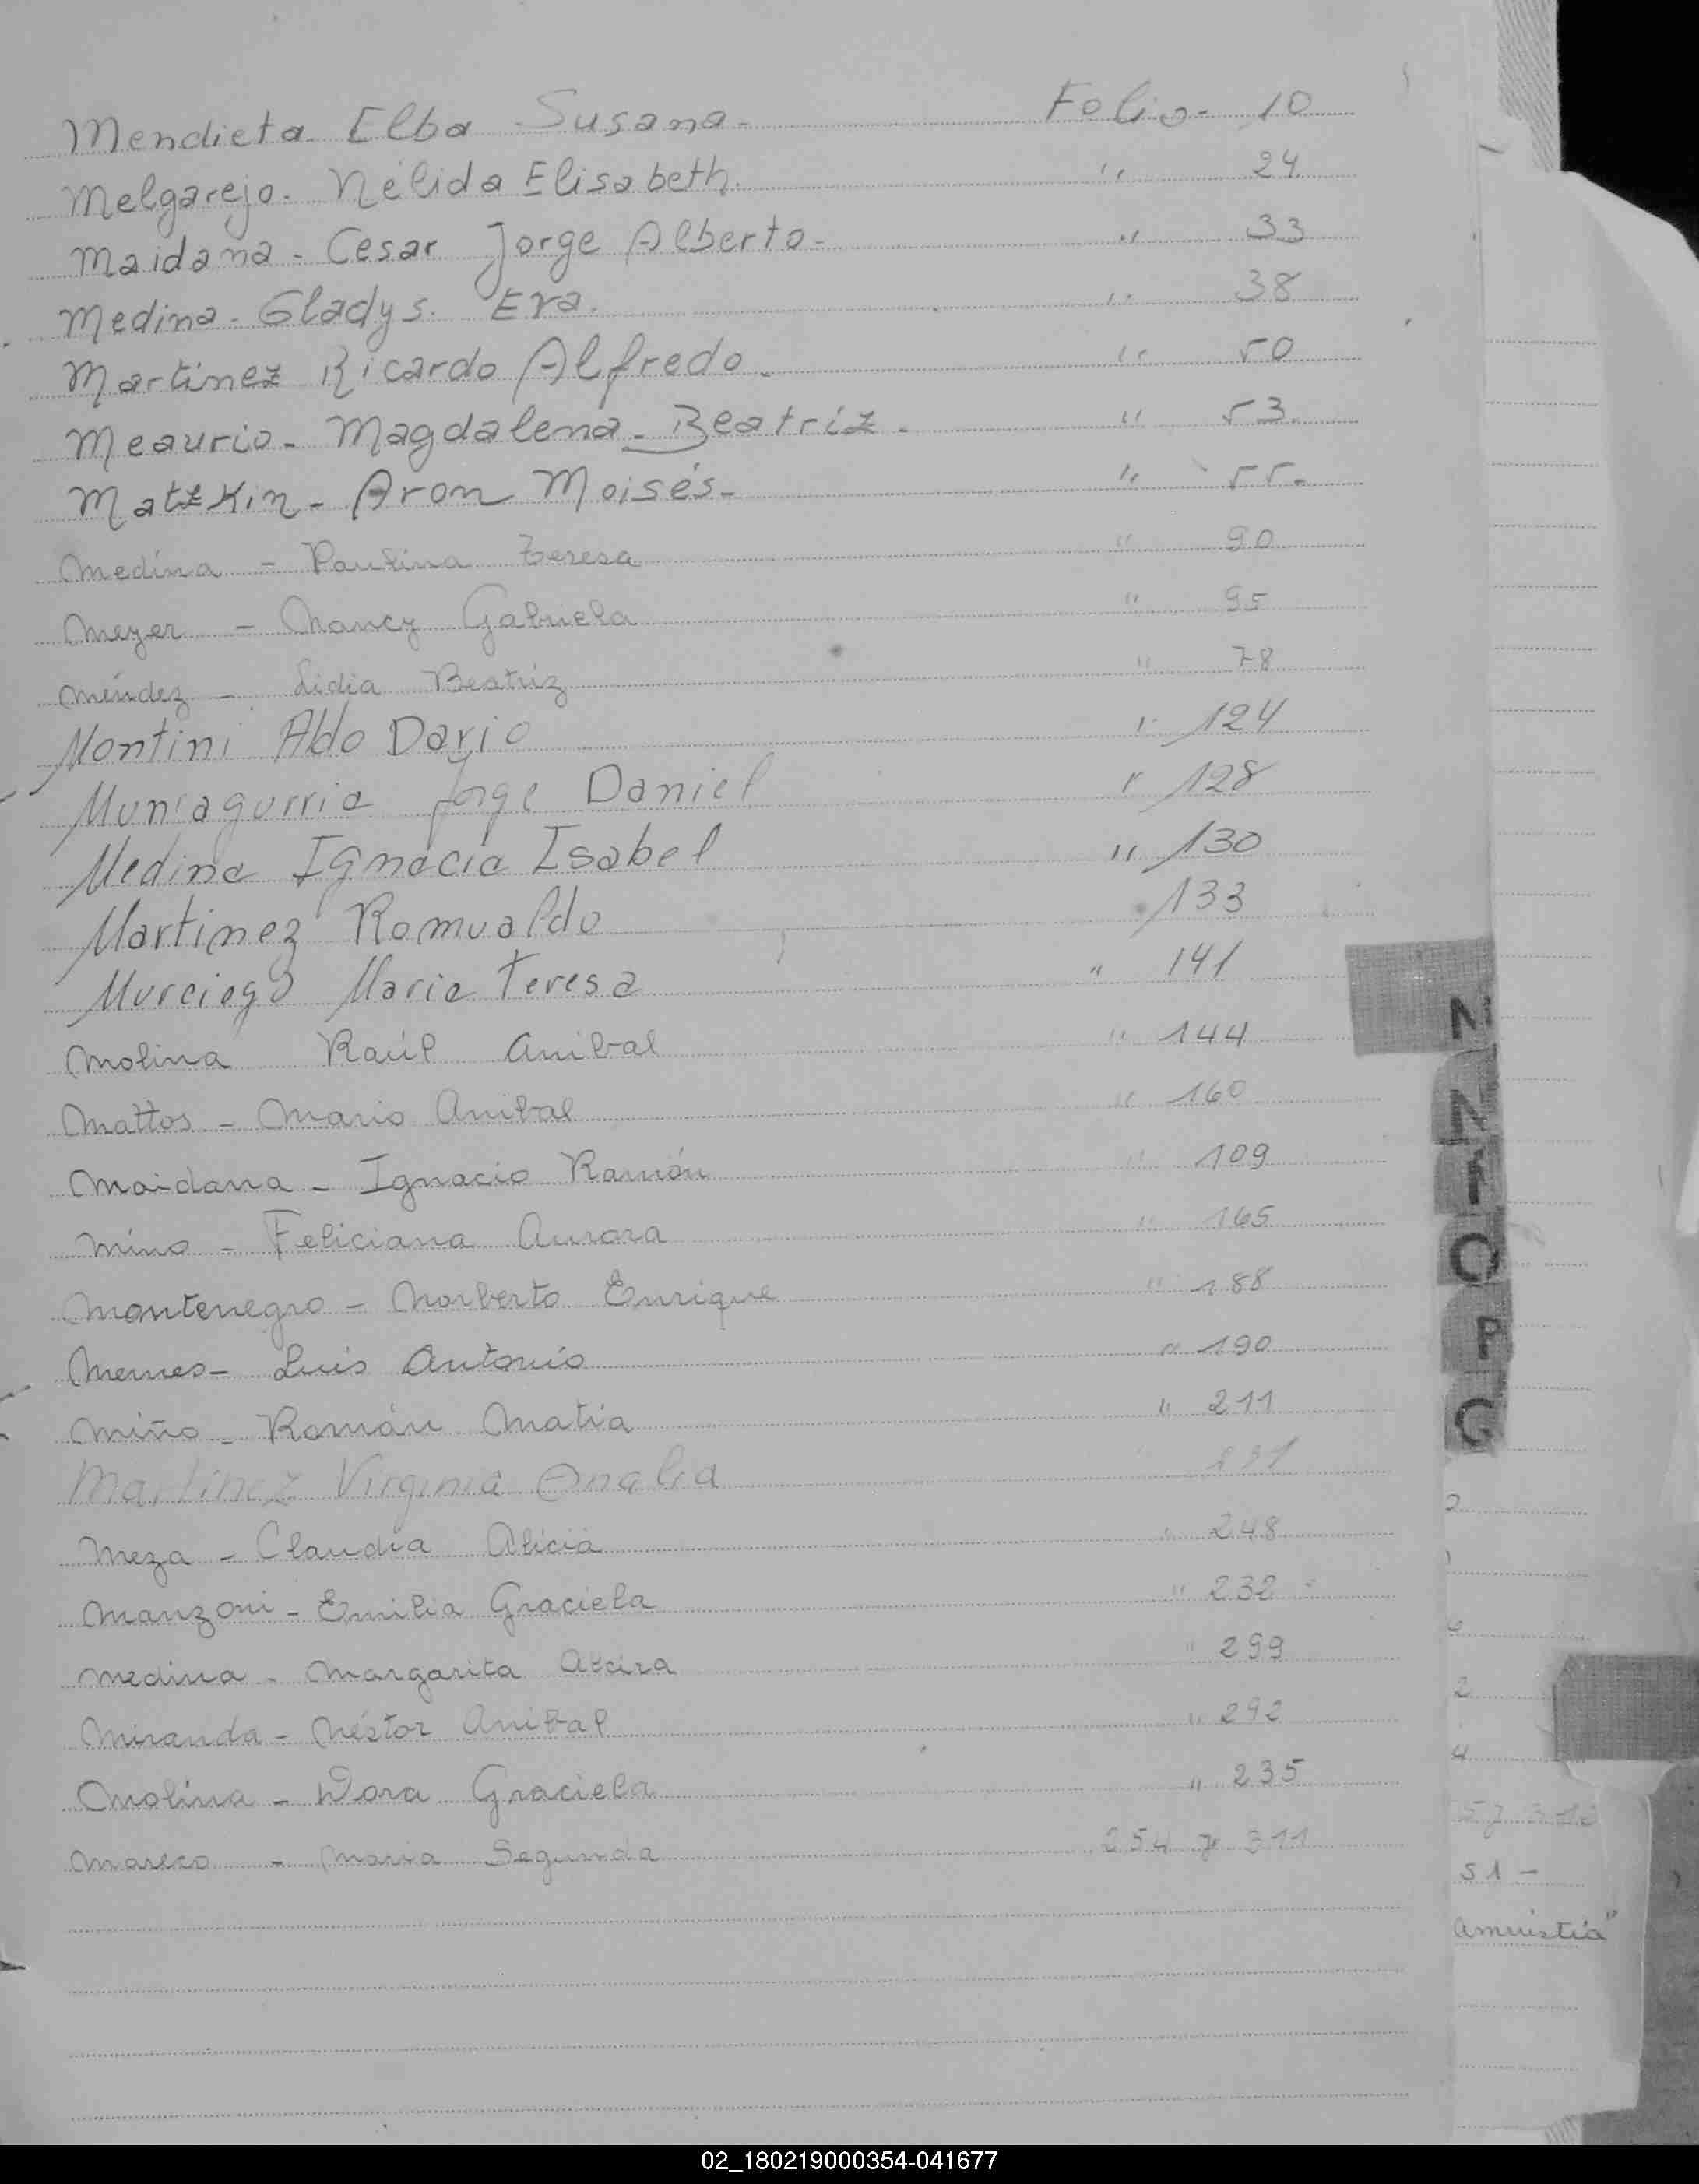 Mendieta. Elba Susana. Folio. 10
Melgarejo. Nélida Elisabeth. " 24
Maidana - Cesar Jorge Alberto - " 33
Medina - Gladys. Eva. " 38
Martinez Ricardo Alfredo. " 50
Meaurio - Magdalena - Beatriz. " 53.
Matzkin - Aron Moisés - " 55.
Medina - Paulina Teresa " 90
Meyer - Nancy Gabriela " 95
Méndez - Lidia Beatriz " 78
Montini Aldo Dario " 124
Muniagurria Jorge Daniel " 128
Medina Ignacia Isabel " 130
Martinez Romualdo 133
Murciego Maria Teresa " 141
Molina Raúl Anibal " 144
Mattos - Mario Anibal " 160
Maidana - Ignacio Ramón " 109
Mino - Feliciana Aurora " 165
Montenegro - Norberto Enrique " 188
Memes - Luis Antonio " 190
Miño - Román Matia " 211
Martinez Virginia Analia 231
Meza - Claudia Alicia " 248
Manzoni - Emilia Graciela " 232
Medina - Margarita Alcira " 299
Miranda - Néstor Anibal " 292
Molina - Dora Graciela " 235
Mareco - Maria Segunda 254 y 311
N
N
O
P
Q
2
4
51 -
Amnistia"
02_180219000354-041677